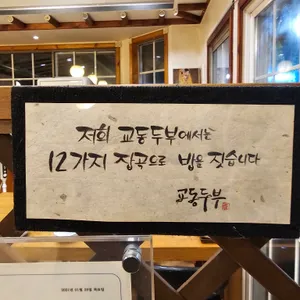 저희 교동두부에서는
12가지 잡곡으로 밥을 짓습니다
교동두부